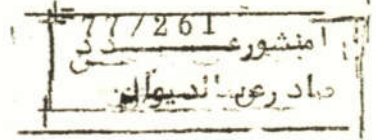 77/261
منشور عدد
صادر عن الديوان